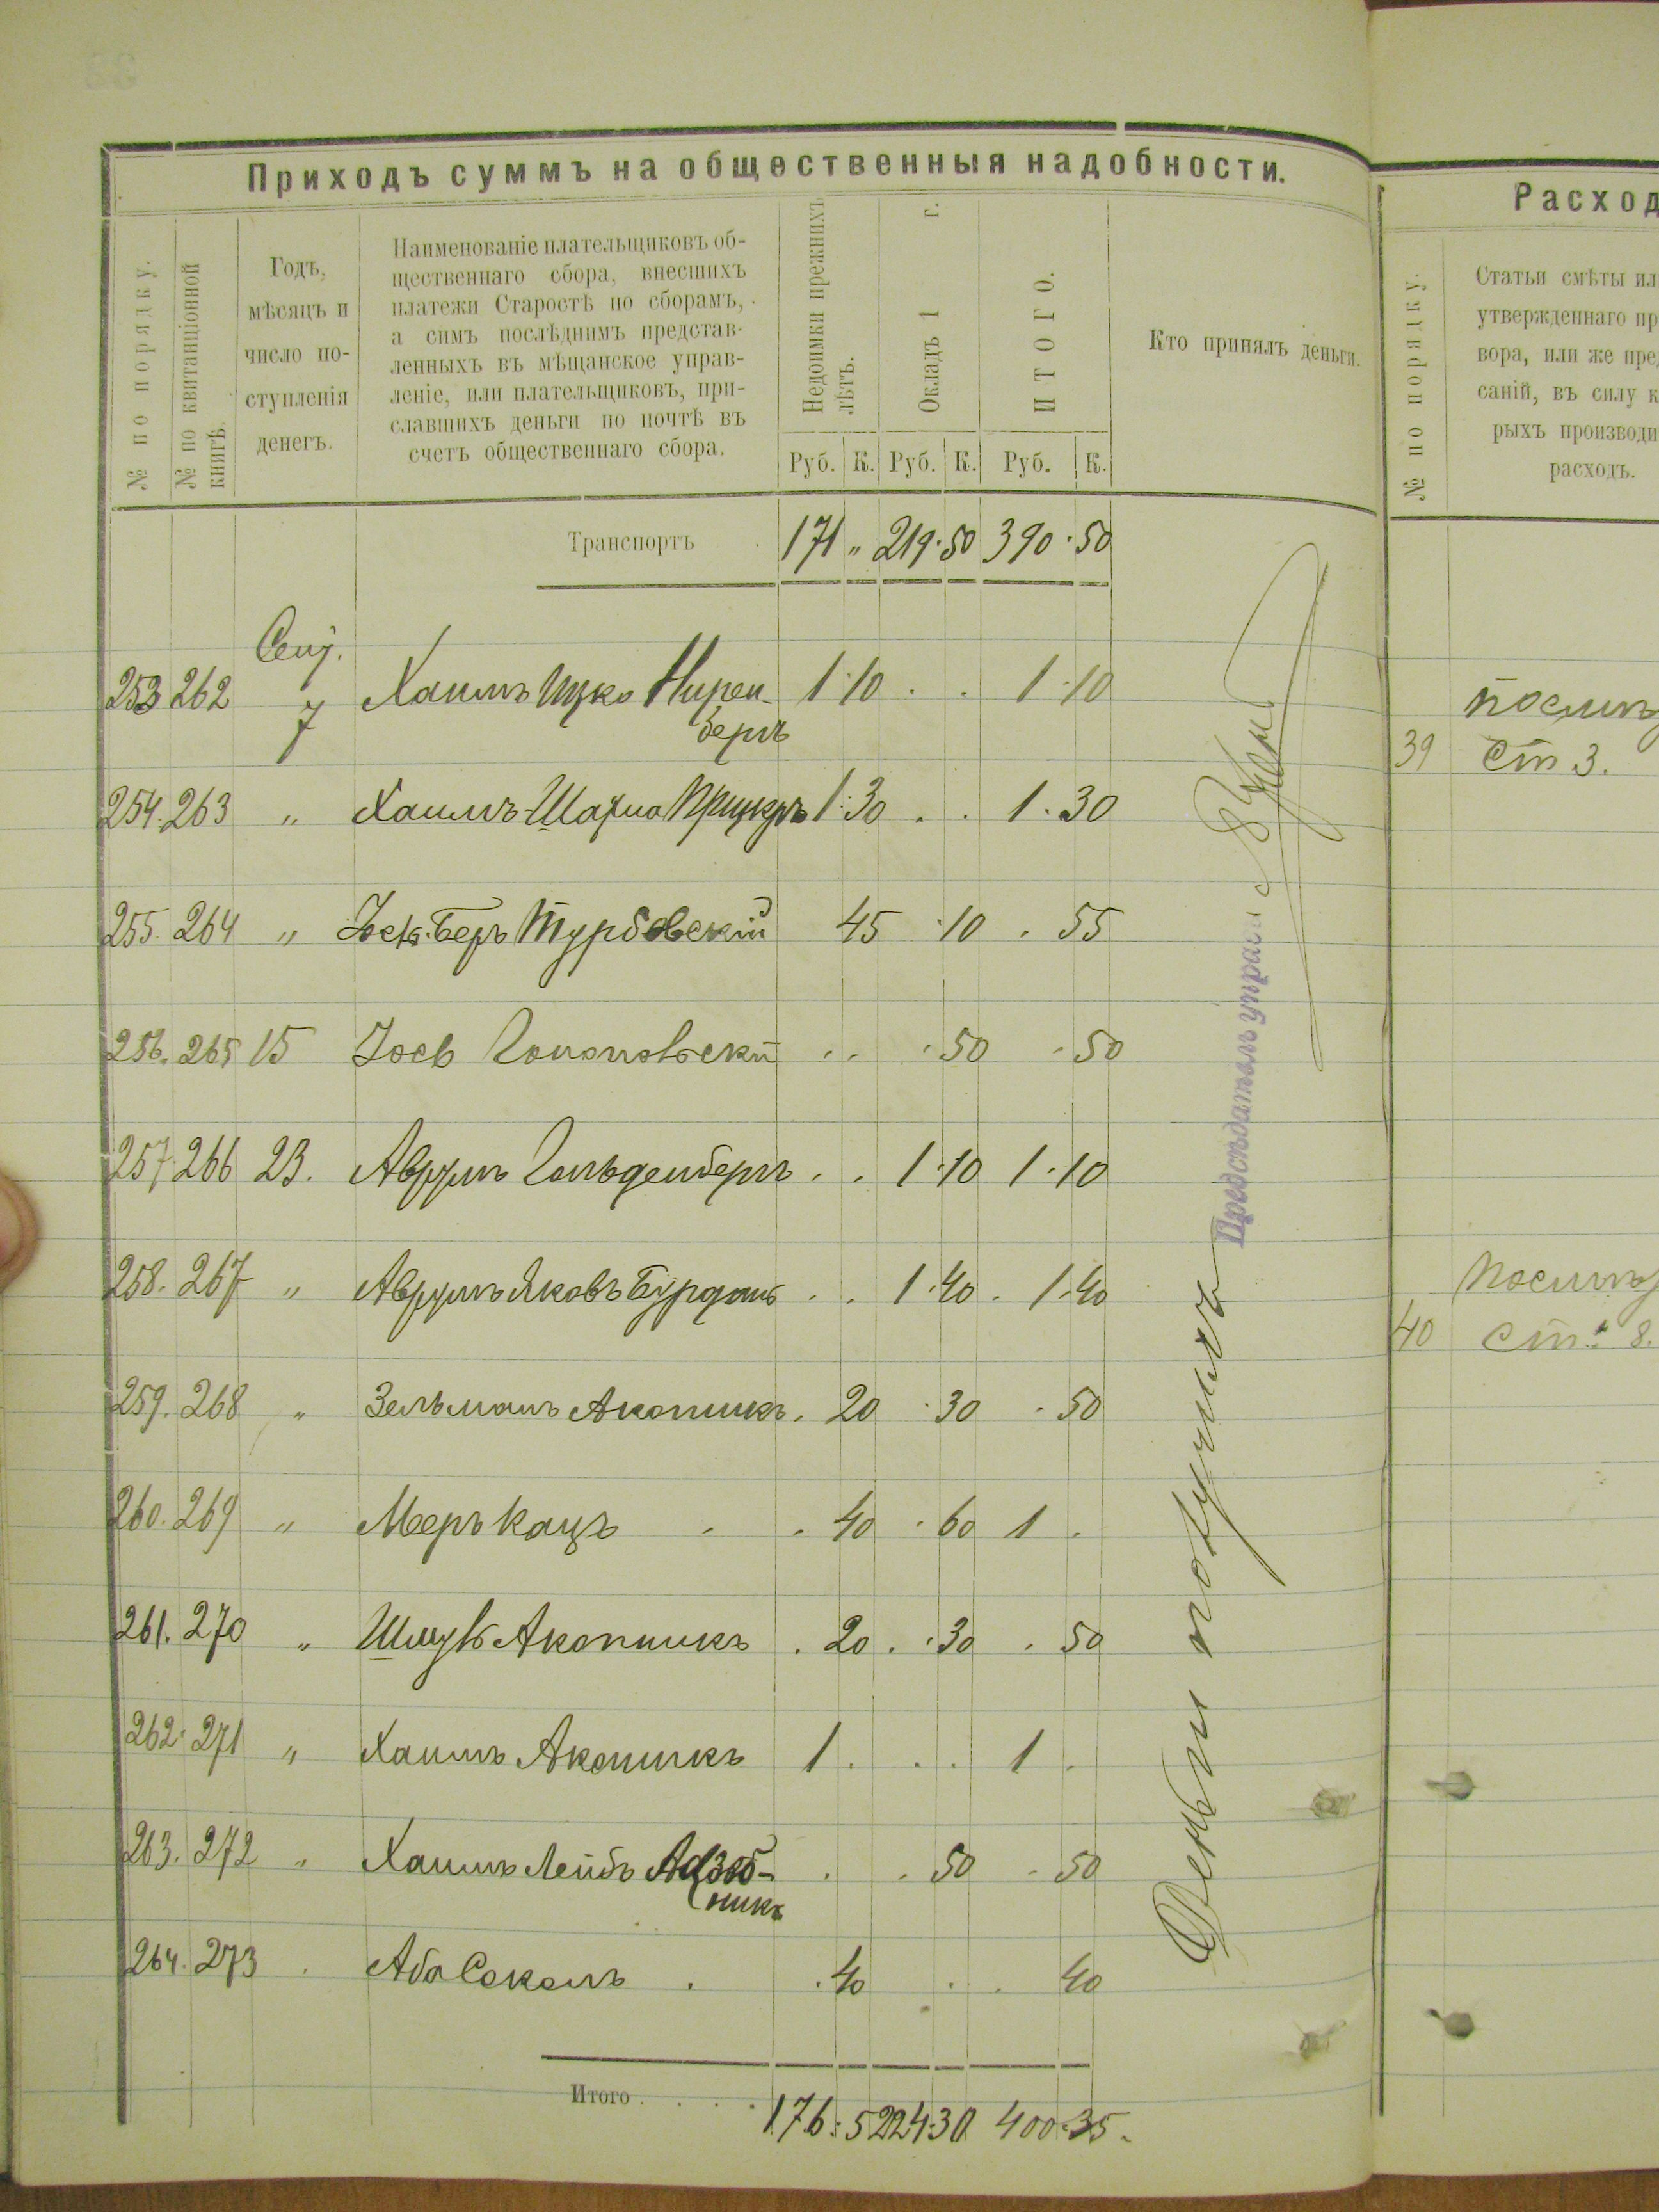 Приходъ суммъ на общественныя надобности.
№ по порядку.
№ по квитанціонной
книгѣ.
Годъ,
мѣсяцъ и
число по-
ступленія
денегъ.
Наименованіе плательщиковъ об-
щественнаго сбора, внесшихъ
платежи Старостѣ по сборамъ,
а симъ послѣднимъ представ-
ленныхъ въ мѣщанское управ-
леніе, или плательщиковъ, при-
славшихъ деньги по почтѣ въ
счетъ общественнаго сбора.
Недоимки прежнихъ
лѣтъ.
Окладъ 1 г.
ИТОГО.
Руб. К. Руб. К. Руб. К.
Кто принялъ деньги.
Транспортъ 171 „ 219.50 390.50
Сент.
253 262 7 Хаимъ Ицко Нирен-
бергъ 1.10 . . 1.10
254. 263 „ Хаимъ-Шахно 1.30 . . 1.30
255. 264 „ Іось-Беръ Турбовскій 45 .10 . 55
256. 265 15 Іось . . .50 .50
257. 266 23. Аврумъ Гольденбергъ . . 1.10 1.10
258. 267 „ Аврумъ Яковъ Бурданъ . . 1.40 . 1.40
259. 268 „ Зельманъ Акопникъ . 20 .30 .50
260. 269 „ Меръ Кацъ . . 40 .60 1 .
261. 270 „ Шмуль Акопникъ . 20 . .30 . 50
262. 271 „ Хаимъ Акопникъ 1 . . . 1 .
263. 272 „ Хаимъ Лейбъ . . 50 . 50
264. 273 . Аба Соколъ . . 40 . . 40
Итого . . . . 176:5 224.30 400.35.
Деньги получилъ
Предсѣдатель управы
Расход
№ по порядку.
Статьи смѣты ил
утвержденнаго пр
вора, или же пред
саній, въ силу к
рыхъ производи
расходъ.
39 ст 3.
40 ст. 8.